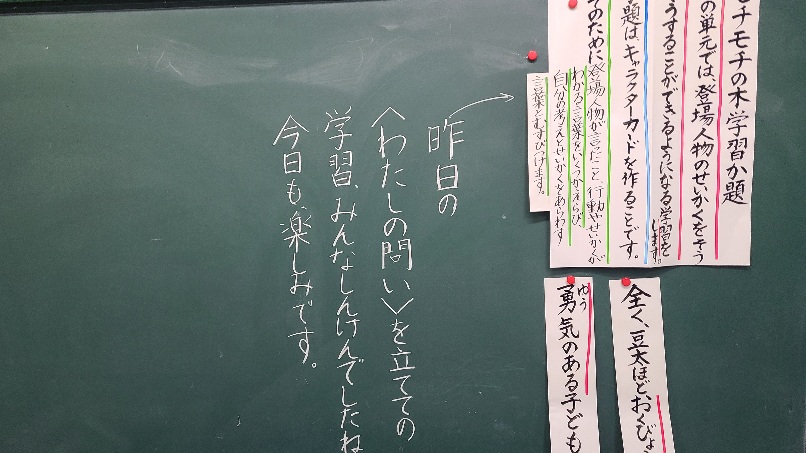 モチモチの木学習か題
の単元では、登場人物のせいかくをそう
ぞうすることができるようになる学習を
します。
題は、キャラクターカードを作ることです。
そのために、登場人物が言ったこと、行動やせいかくが
わかる言葉をいくつかえらび
自分の考えとせいかくをあらわす
言葉とむすびつけます。
全く、豆太ほど、おくびょう
ゆう
勇気のある子ども
昨日の
〈わたしの問い〉を立てての
学習、みんなしんけんでしたね
今日も、楽しみです。